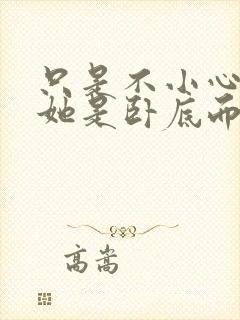 只是不小心
她是卧底而
高嵩